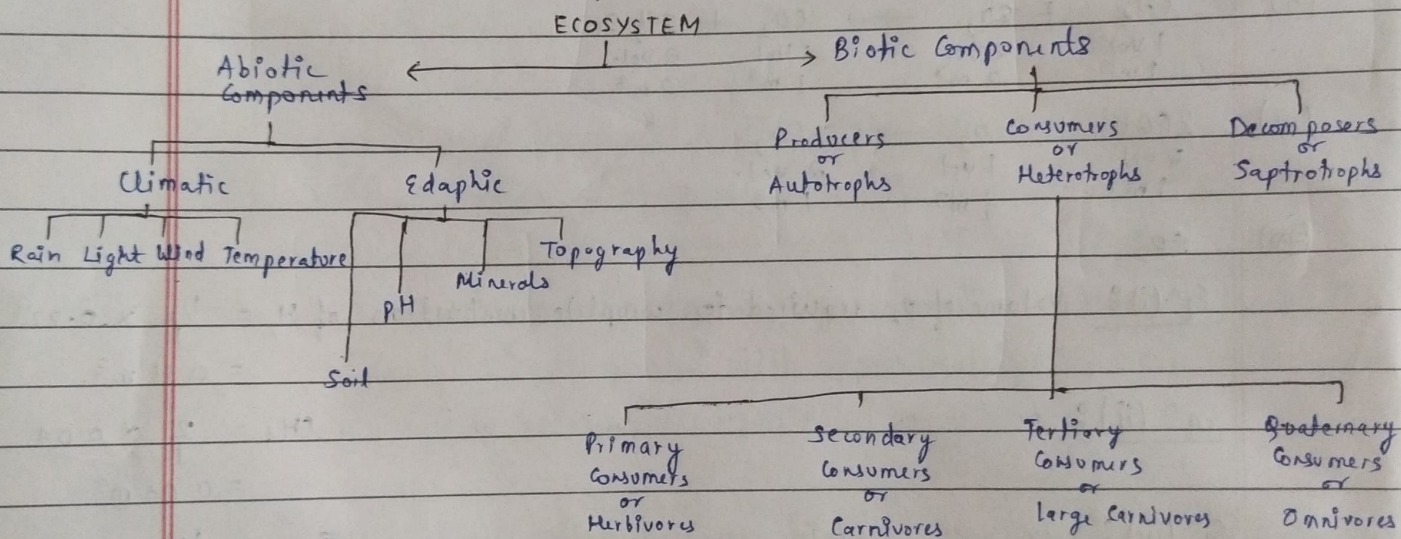 ECOSYSTEM
Abiotic
Components
Biotic Components
Climatic
Edaphic
Producers
or
Autotrophs
Consumers
or
Heterotrophs
Decomposers
or
Saptrotrophs
Rain Light Wind Temperature
Soil
pH
Minerals
Topography
Primary
Consumers
or
Herbivores
Secondary
Consumers
or
Carnivores
Tertiary
Consumers
or
large Carnivores
Quaternary
Consumers
or
Omnivores